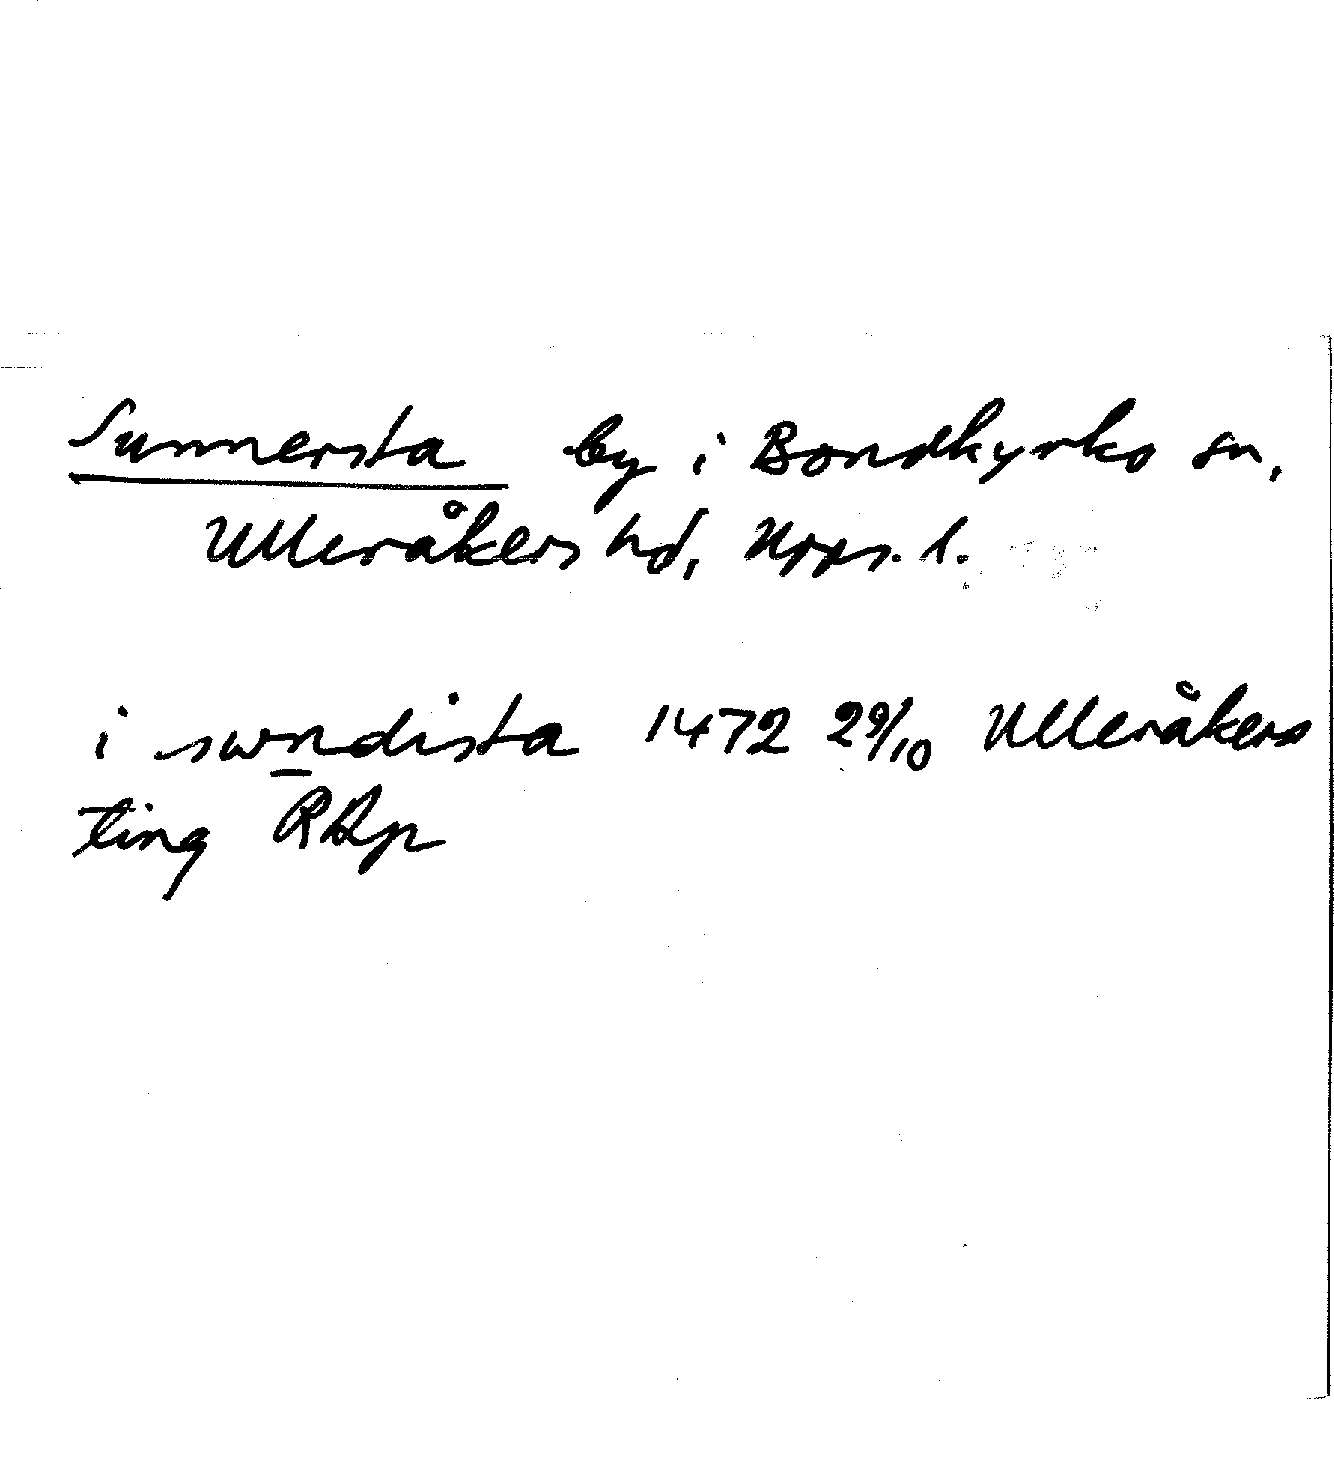 Sunnersta by i Bondkyrko sn,
Ulleråkers hd, Upps. l.
i swndista 1472 29/10 Ulleråkers
ting RAp